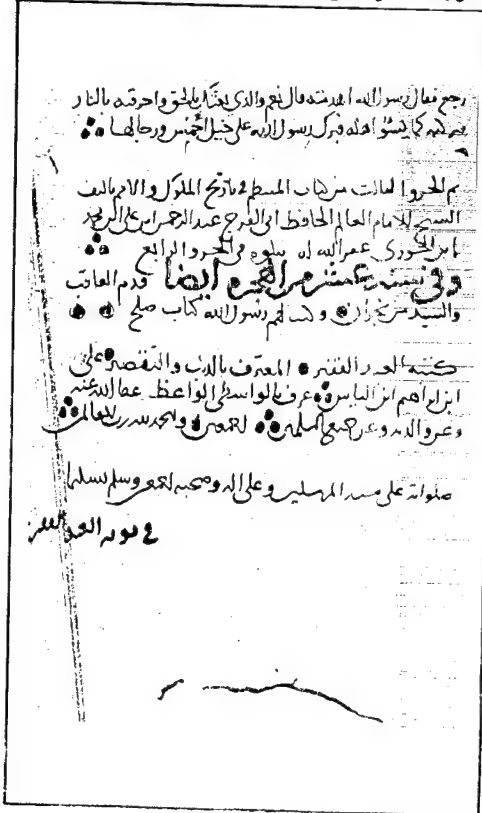 رجع فقال رسول الله اهدمته قال نعم والذي بعثك بالحق واحرقته بالنار
فتركته كما يسوا اهله فبرك رسول الله على خيل احمس ورجالها
تم الجزو الثالث من كتاب المنتظم في تاريخ الملوك والامم تاليف
الشيخ الامام العالم الحافظ ابي الفرج عبد الرحمن ابن علي ابن محمد
ابن الجوزي غفر الله له يتلوه في الجزو الرابع
وفي سنة عشر من الهجرة ايضا قدم العاقب
والسيد من نجران وكتب لهم رسول الله كتاب صلح
كتبه العبد الفقير المعترف بالذنب والتقصير علي
ابن ابراهيم ابن الياس عرف بالواسطي الواعظ عفا الله عنه
وعن والديه وعن جميع المسلمين اجمعين والحمد لله رب العالمين
صلواته على سيد المرسلين وعلى اله وصحبه اجمعين وسلم تسليما
في نوبه العبد الفقير